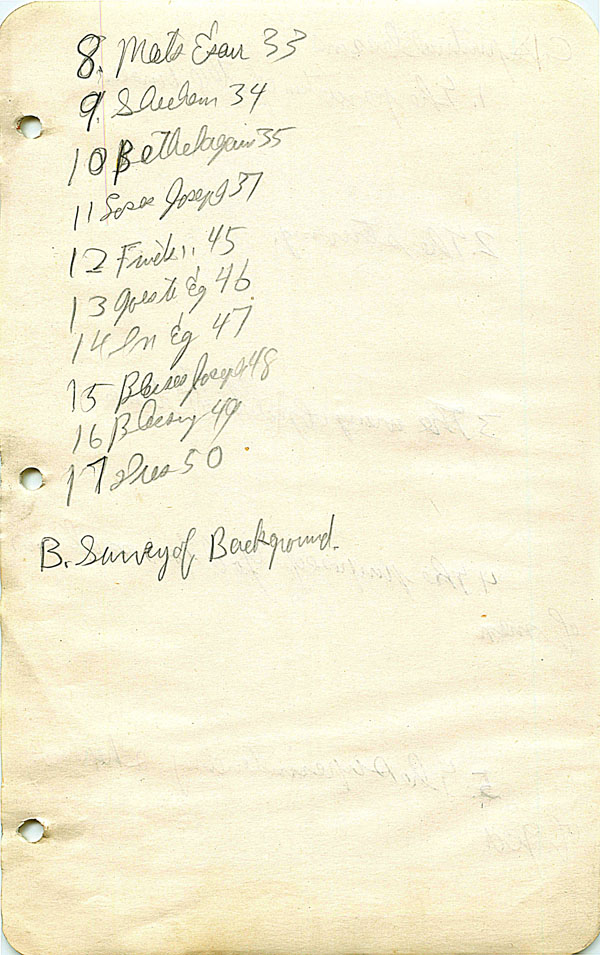 8. Mets Esau 33
9. Shechem 34
10 Bethel again 35
11 Joseph 37
12 45
13 Goes to Eg 46
14 In Eg 47
15 Blesses Joseph 48
16 Blessing 49
17 Dies 50
B. Survey of Background.